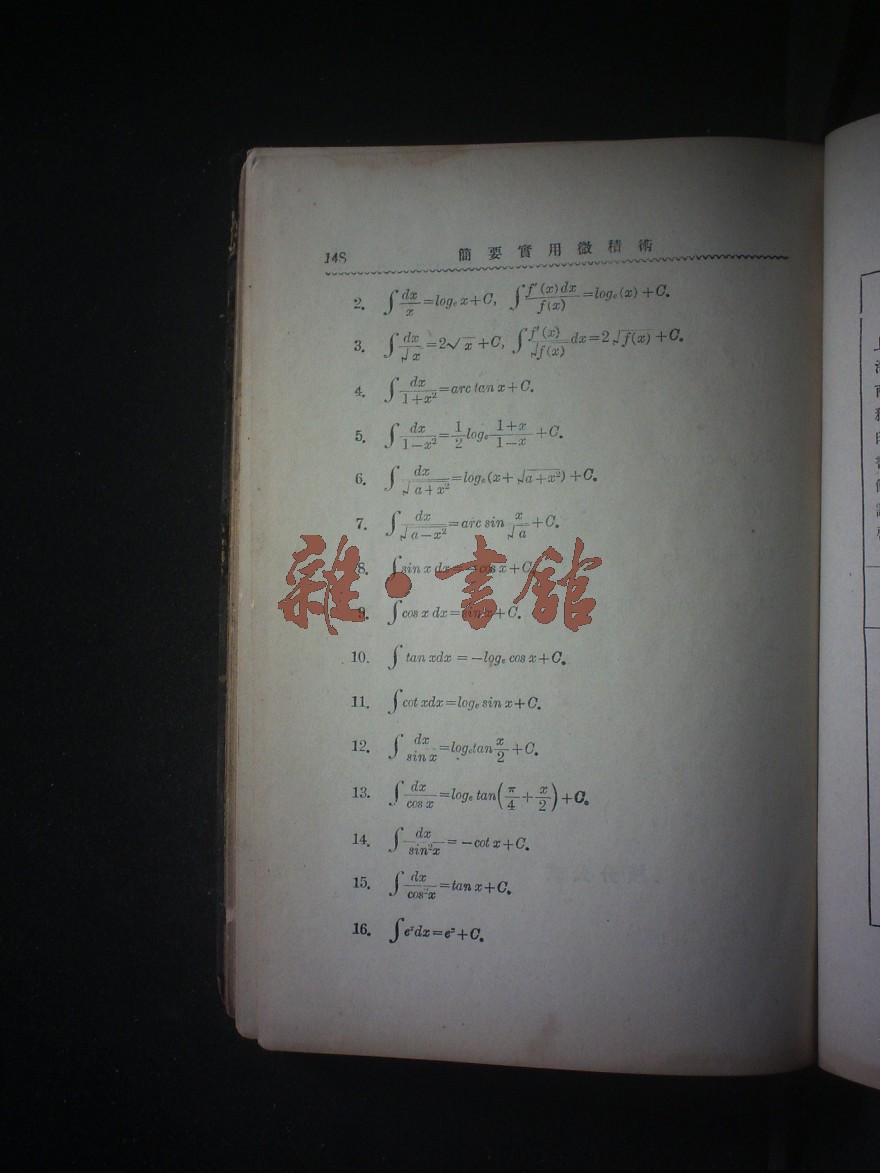 148 簡要實用微積術
2. ∫ dx/x = logₑ x + C, ∫ f′(x)dx/f(x) = logₑ(x) + C.
3. ∫ dx/√x = 2√x + C, ∫ f′(x)/√f(x) dx = 2√f(x) + C.
4. ∫ dx/(1+x²) = arc tan x + C.
5. ∫ dx/(1−x²) = 1/2 logₑ (1+x)/(1−x) + C.
6. ∫ dx/√(a+x²) = logₑ(x + √(a+x²)) + C.
7. ∫ dx/√(a−x²) = arc sin x/√a + C.
8. ∫ sin x dx = −cos x + C
9. ∫ cos x dx = sin x + C.
雜·書館
10. ∫ tan xdx = −logₑ cos x + C.
11. ∫ cot xdx = logₑ sin x + C.
12. ∫ dx/sin x = logₑ tan x/2 + C.
13. ∫ dx/cos x = logₑ tan(π/4 + x/2) + C.
14. ∫ dx/sin²x = −cot x + C.
15. ∫ dx/cos²x = tan x + C.
16. ∫ eˣdx = eˣ + C.